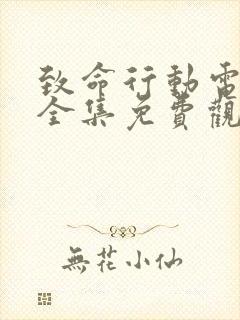 致命行動電
全集免費觀
無花小仙